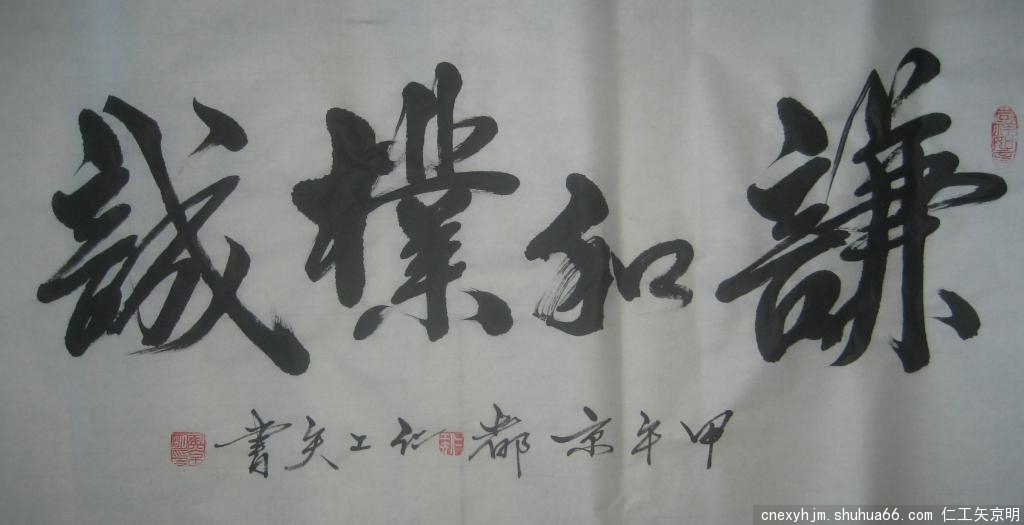 謙和樸誠
甲午京都仁工矢書
cnexyhjm.shuhua66.com 仁工矢京明